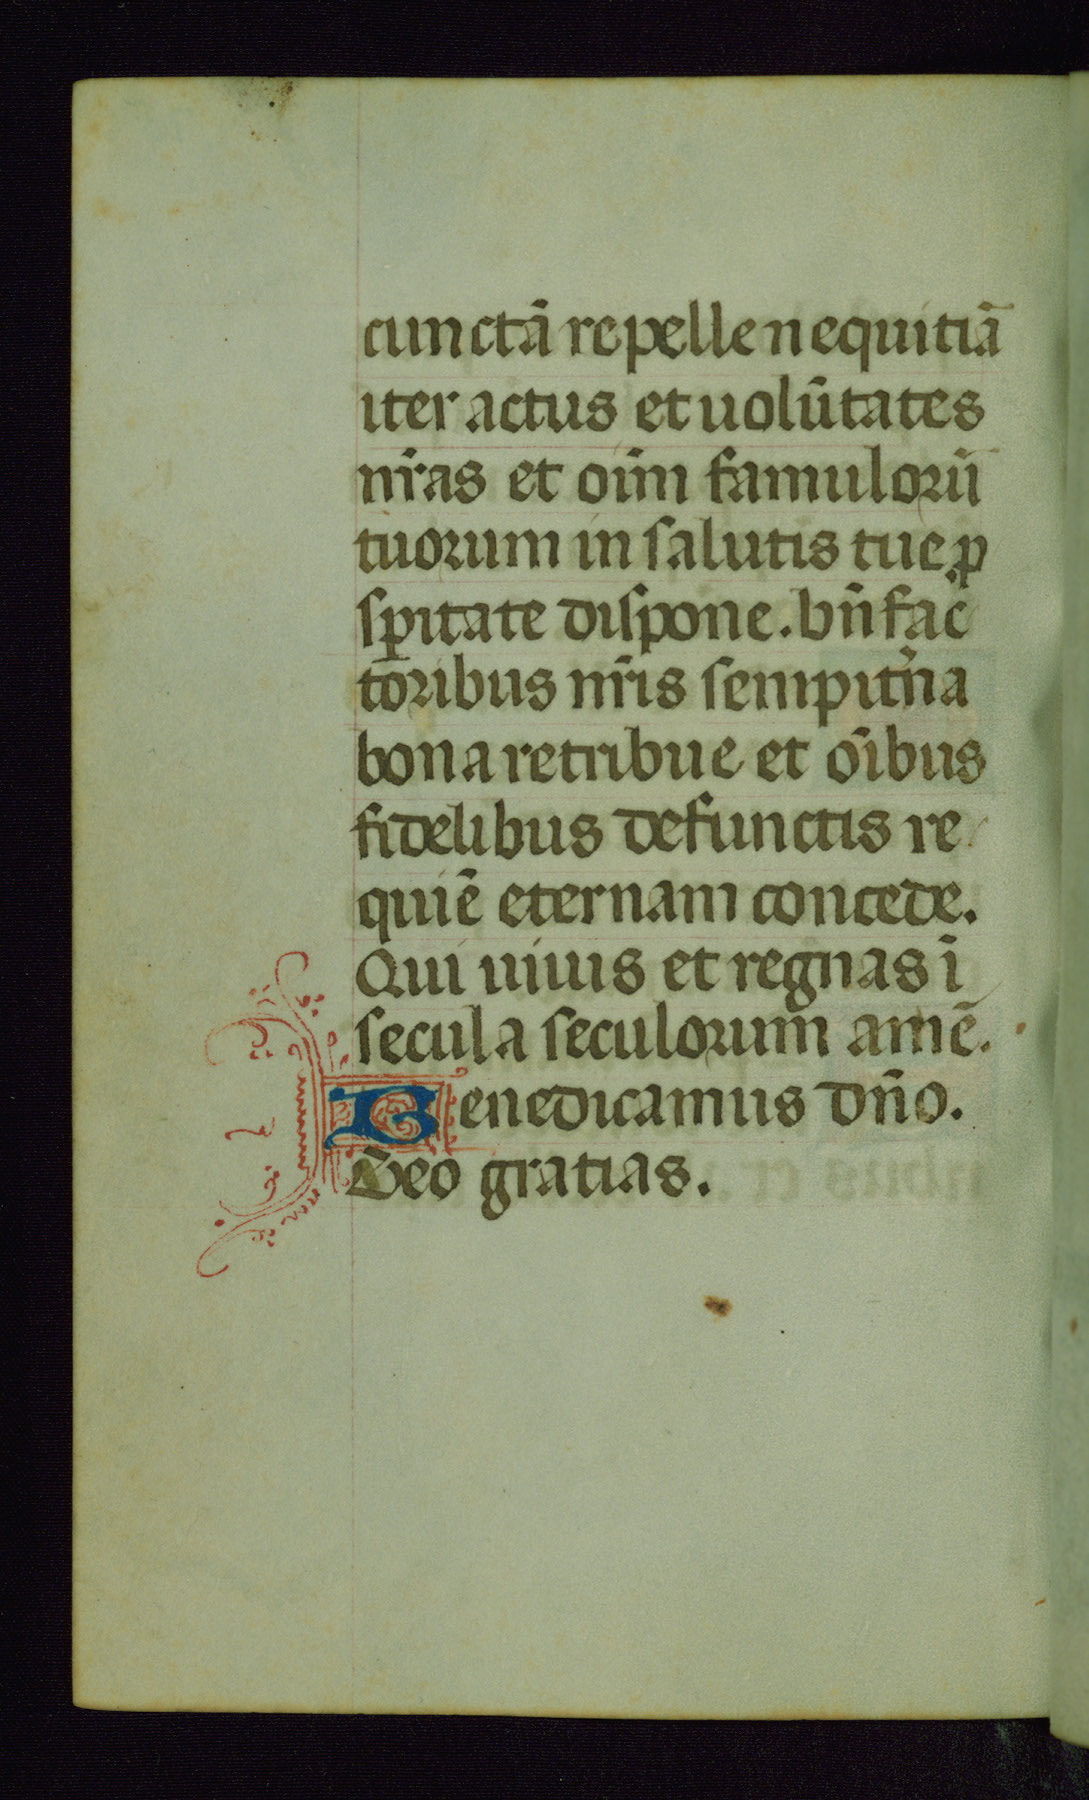 cunctā repelle nequitiā
iter actus et uolūtates
nr̄as et oīm famulorū
tuorum in salutis tue ꝓ
sꝑitate dispone. bn̄fac
toribus nr̄is sempit̄na
bona retribue et oībus
fidelibus defunctis re
quiē eternam concede.
Qui uiuis et regnas ī
secula seculorum amē.
Benedicamus dn̄o.
Deo gratias.